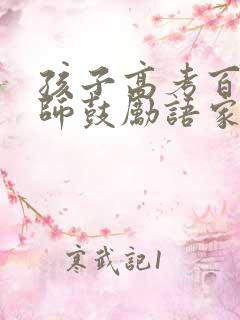 孩子高考百
師鼓勵語家
寒武記1